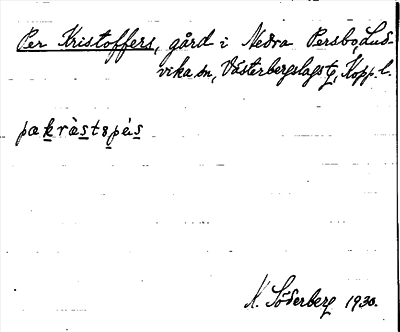 Per Kristoffers, gård i Nedra Persbo, Lud-
vika sn, Västerbergslags tg, Kopp. l.
pækràstspás
K. Söderberg 1930.